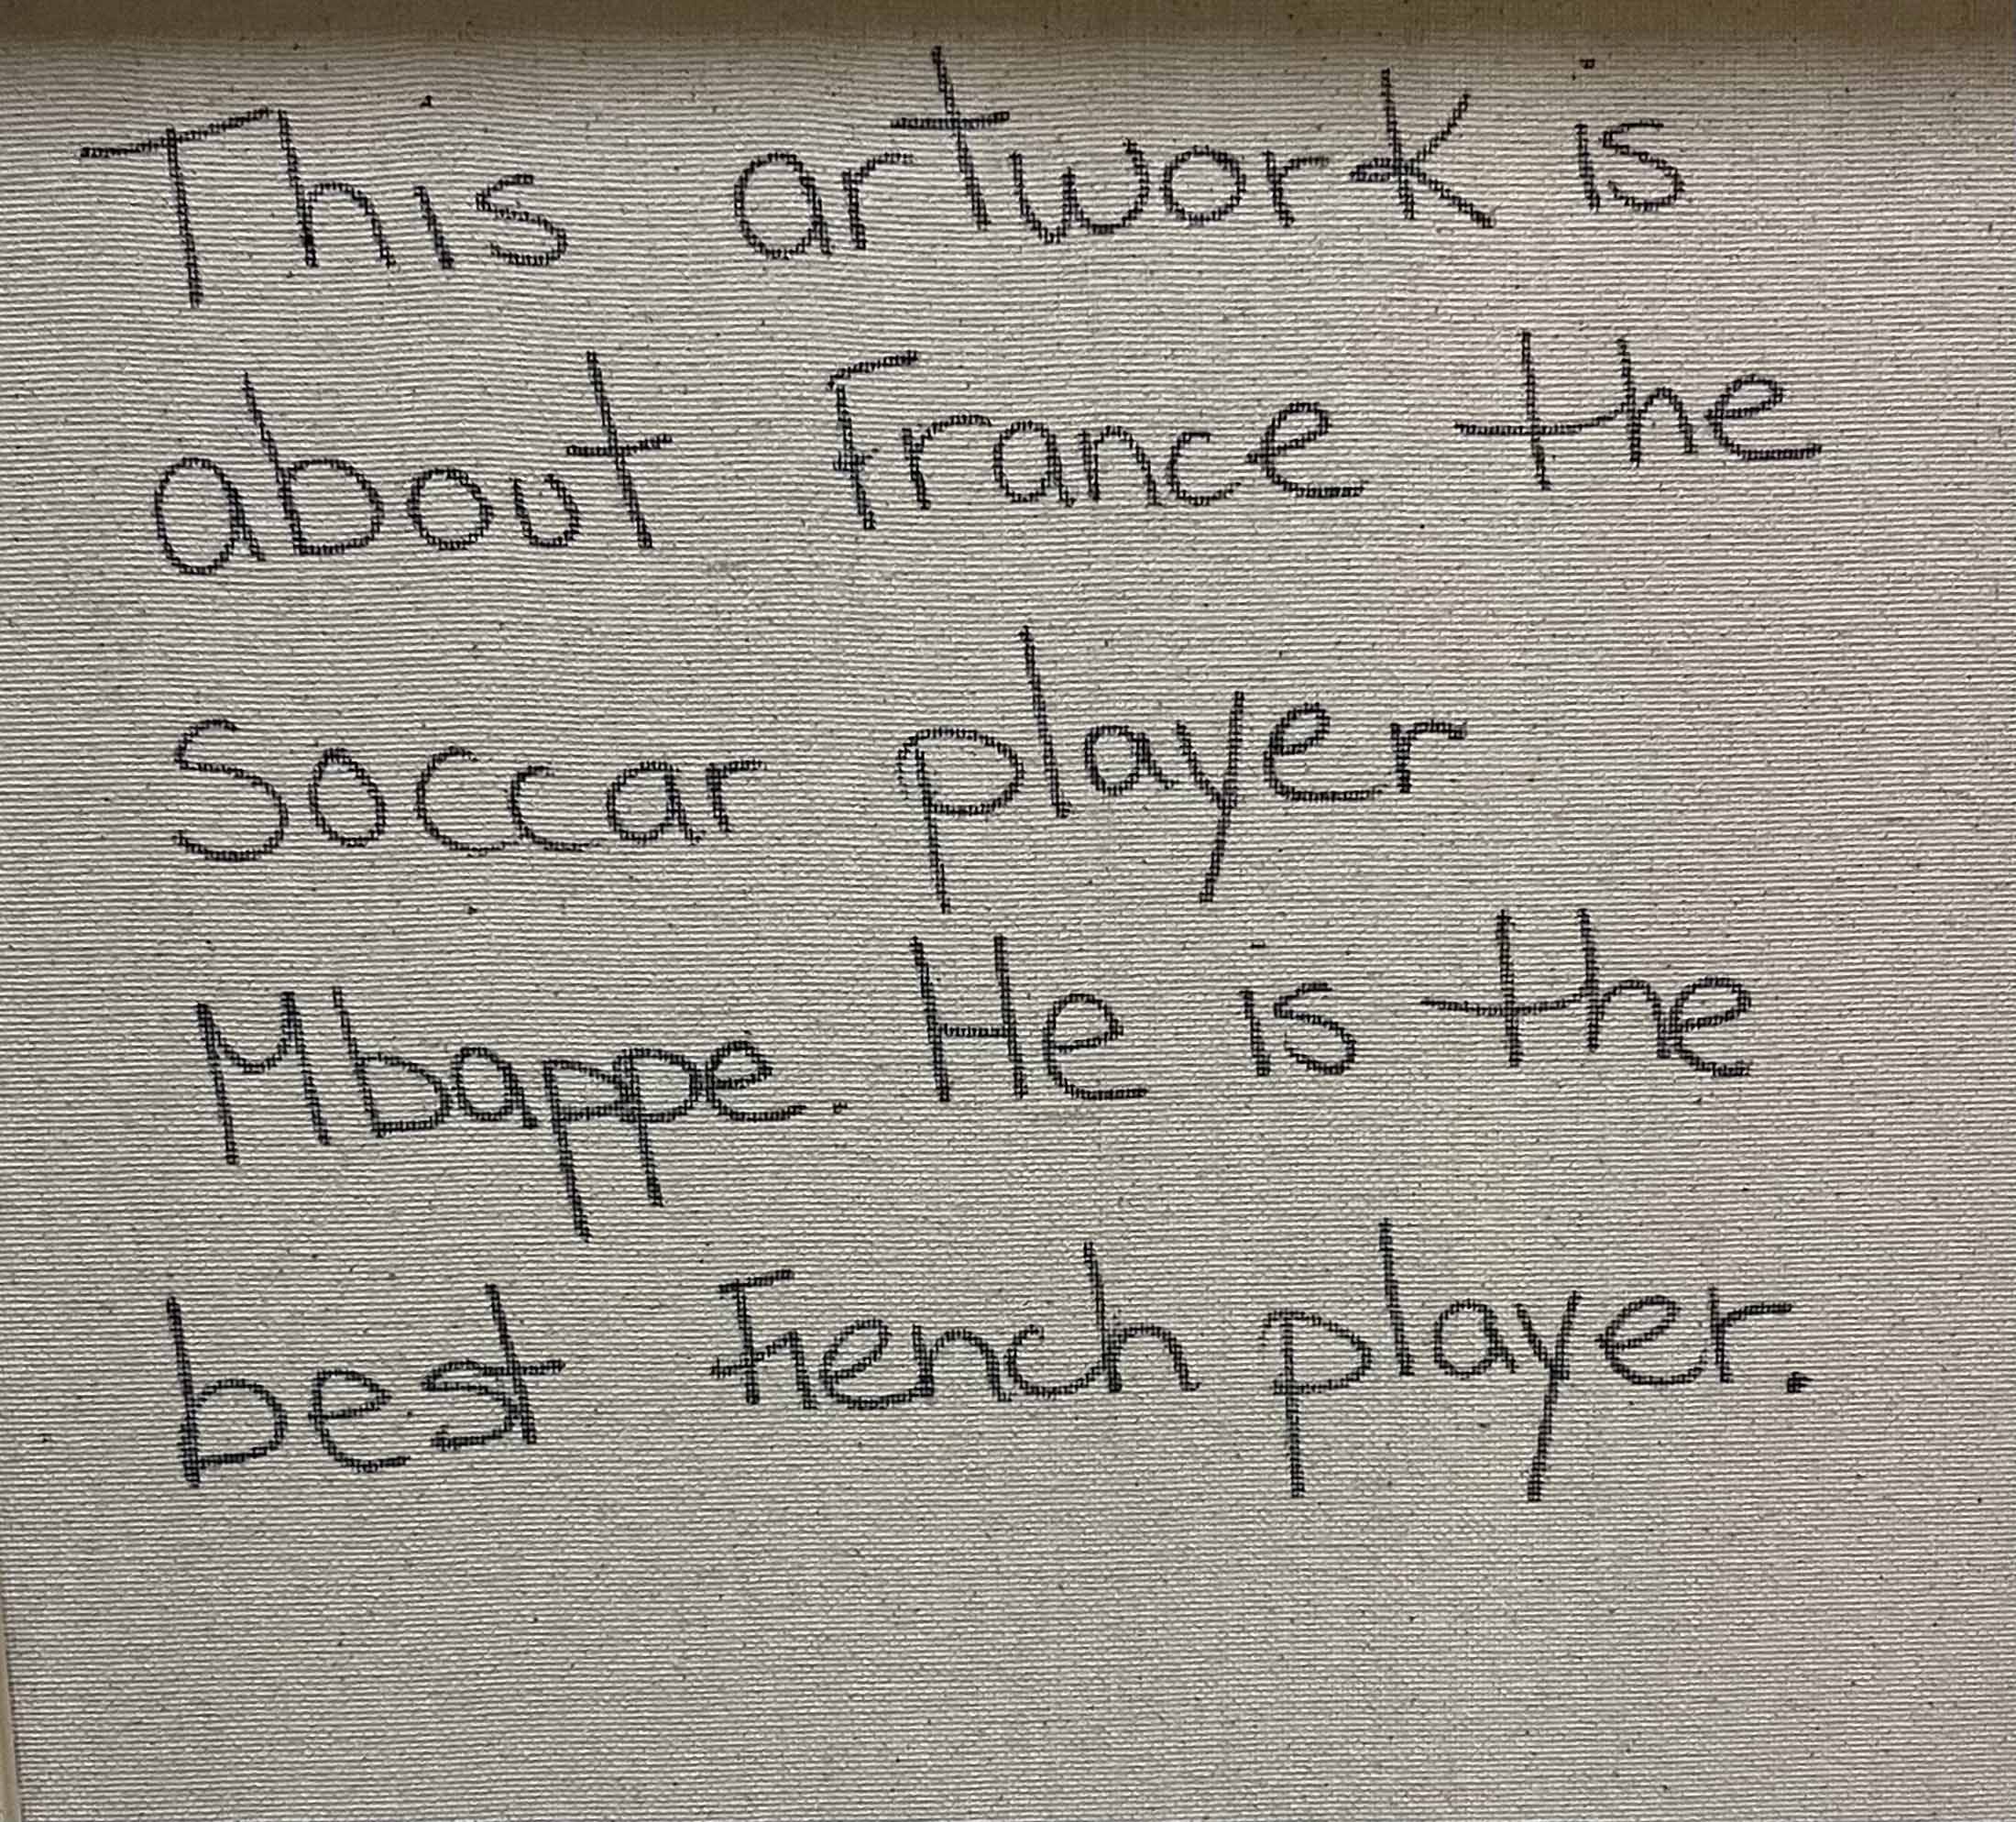 This artwork is
about France the
Soccar player
Mbappe. He is the
best French player.